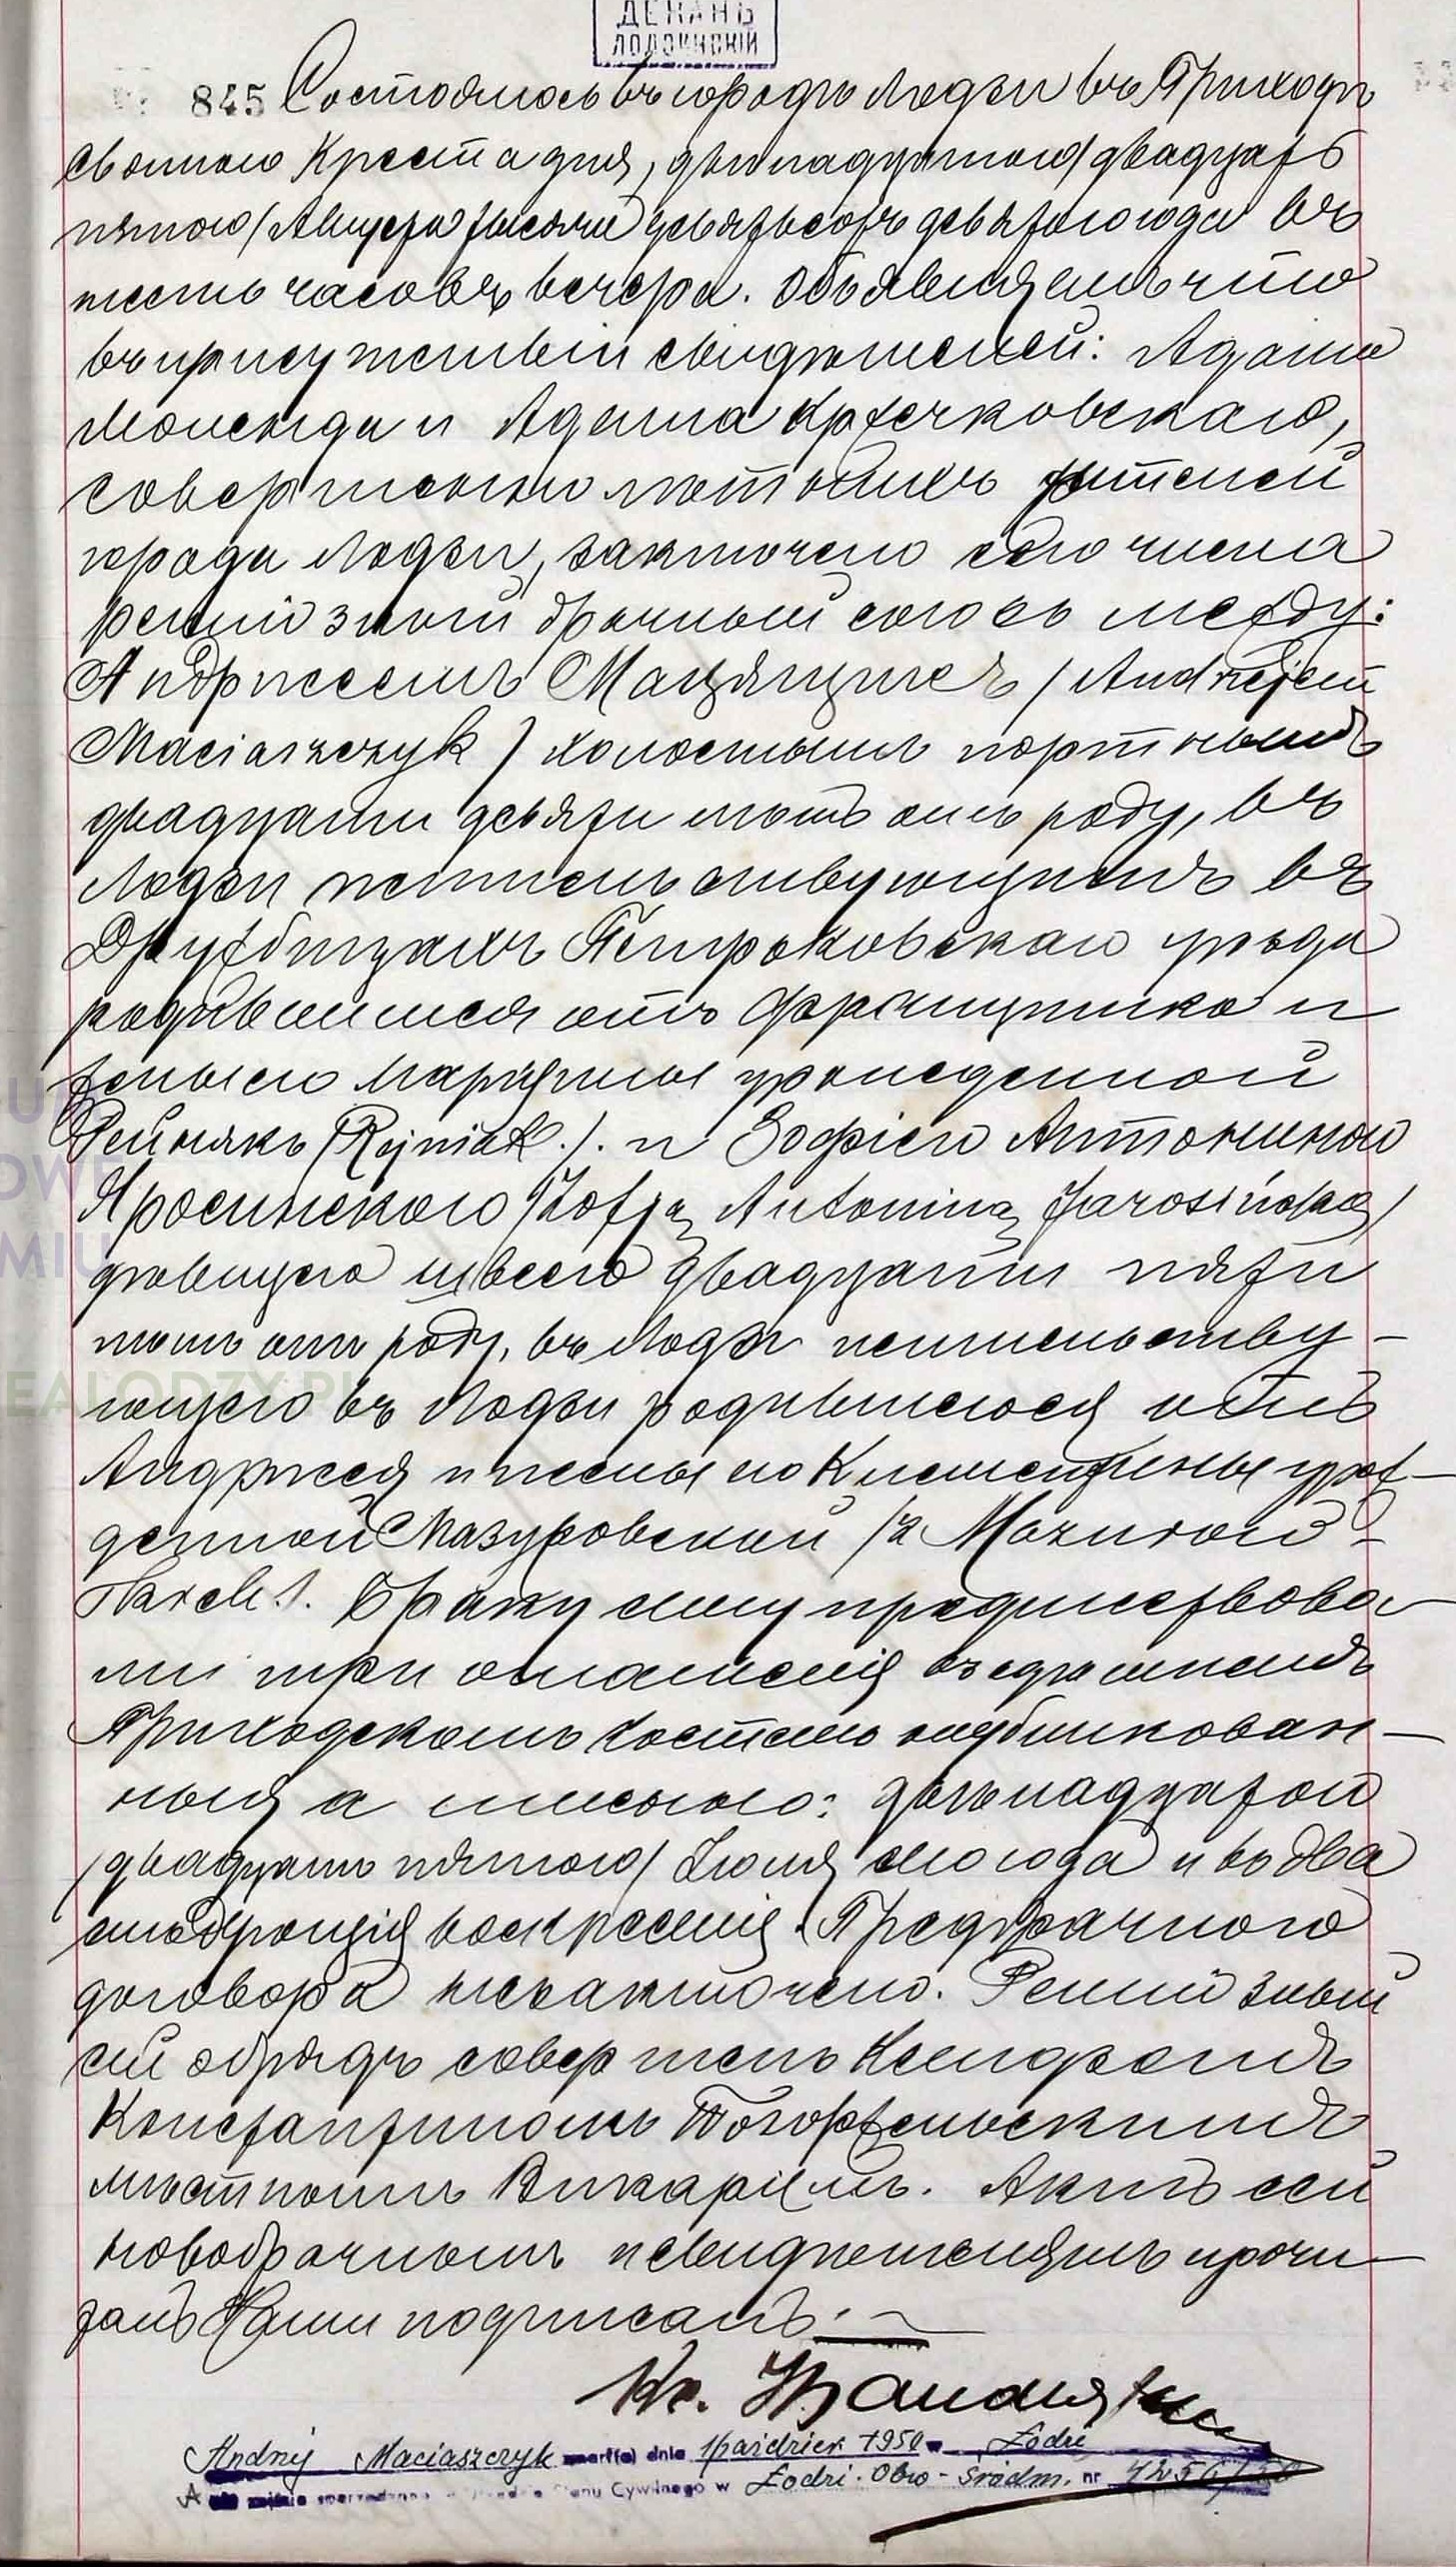 ДЕКАНЪ
ЛОДЗИНСКІЙ
845 Состоялось въ городѣ Лодзи въ Приходѣ
Святого Креста дня, двѣнадцатого/двадцать
пятого/Августа тысяча девятьсотъ девятого года въ
шесть часовъ вечера. Объявляемъ что
въ присутствіи свидѣтелей: Адама
и Адама Кржечковскаго,
совершеннолѣтнихъ жителей
города Лодзи, заключено сего числа
религіозный брачный союзъ между:
Андржеемъ Мацящикъ /Andrzejem
Maciaszczyk/ холостымъ портнымъ
двадцати девяти лѣтъ отъ роду, въ
Лодзи жительствующимъ въ
Дружбицахъ Петроковскаго уѣзда
родившимся отъ Францишка и
жены его Маріянны урожденной
Рейнякъ (Rejniak.). и Зофіею Антониною
Яросинскою /Zofją Antoniną Jarosińską/
дѣвицею швеею двадцати пяти
лѣтъ отъ роду, въ Лодзи жительству-
ющею въ Лодзи родившеюся отъ
Андржея и жены его Клементины урож-
денной Мазуровской /z Mazurow-
skich/. Браку сему предшествова-
ли три оглашенія въ здѣшнемъ
Приходскомъ костелѣ опубликован-
ныя а именно: двѣнадцатого
/двадцать пятого/ Іюля сего года и въ два
слѣдующія воскресенія. Предбрачного
договора незаключено. Религіозный
сей обрядъ совершенъ Ксендзомъ
Константиномъ
мѣстнымъ Викаріемъ. Актъ сей
новобрачнымъ и свидѣтелямъ прочи-
танъ Нами подписанъ.—
Кс.
Andrzej Maciaszczyk zmarł(a) dnia 1 październ. 1950 w Łodzi
Cywilnego w Łodzi. Obw-Śródm. nr